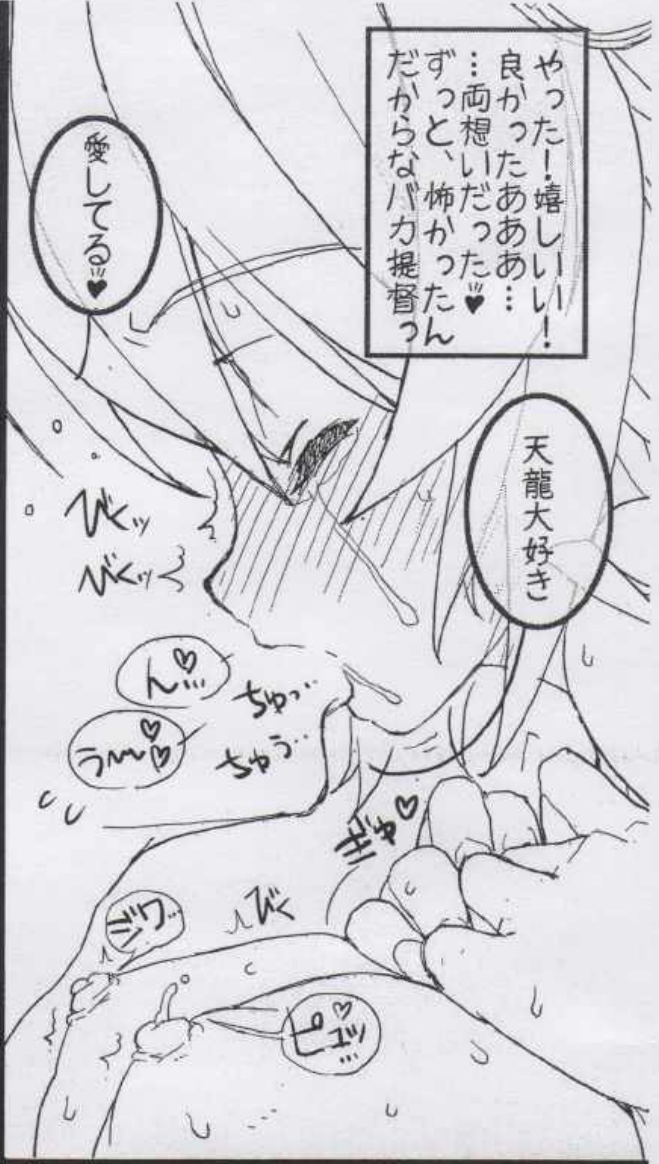 やった！嬉しいぃ！
良かったあああ…
…両想いだった♥
ずっと、怖かったん
だからなバカ提督っ
愛してる♥
天龍大好き
びくッ
びくッ
ん♡…
う〜〜♡♡
ちゅっ…
ちゅう…
ぎゅ♡
びく
ピュッ♡…